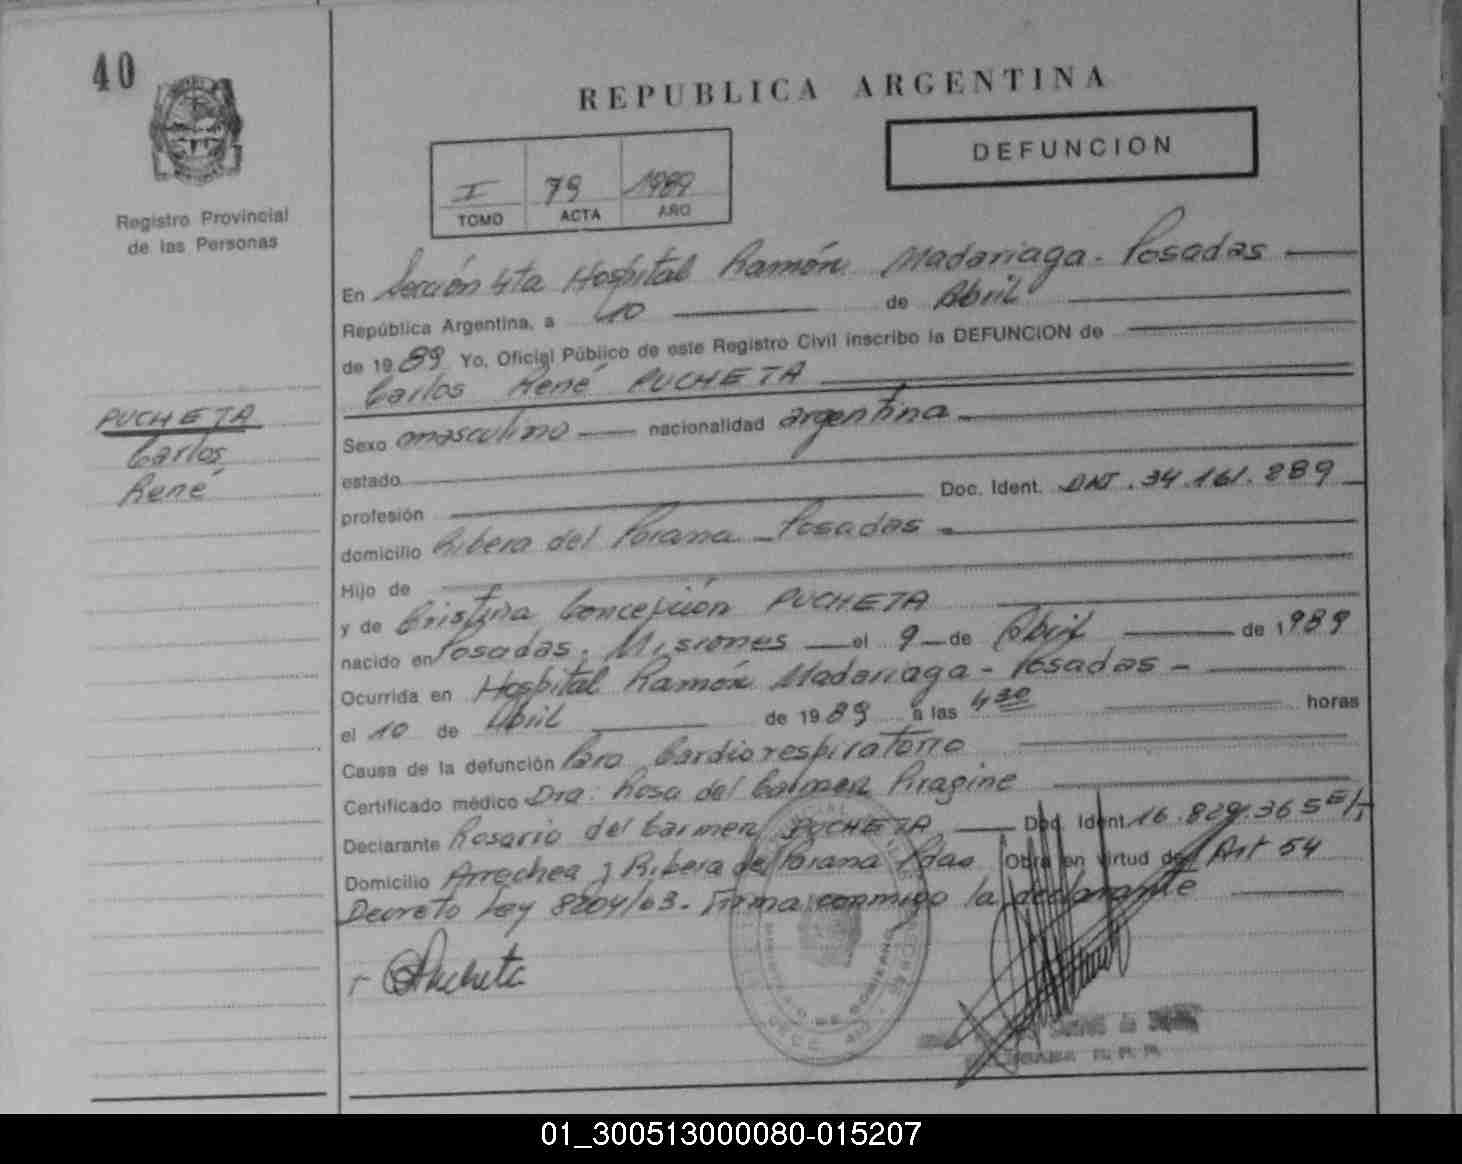 40
REPUBLICA ARGENTINA
DEFUNCION
I 79 1989
TOMO ACTA AÑO
Registro Provincial
de las Personas
En Sección 4ta Hospital Ramón Madariaga - Posadas
República Argentina, a 10 de Abril
de 1989 Yo, Oficial Público de este Registro Civil inscribo la DEFUNCION de
Carlos René PUCHETA
PUCHETA
Carlos
René
Sexo masculino nacionalidad argentina
estado
profesión Doc. Ident. DNI. 34.161.289
domicilio Ribera del Parana - Posadas -
Hijo de
y de Cristina Concepción PUCHETA
nacido en Posadas. Misiones el 9 de Abril de 1989
Ocurrida en Hospital Ramón Madariaga - Posadas -
el 10 de Abril de 1989 a las 4 30 horas
Causa de la defunción Paro Cardiorespiratorio
Certificado médico Dra: Rosa del Carmen Piragine
Declarante Rosario del Carmen PUCHETA Doc. Ident. 16.829.365
Domicilio Arrechea y Ribera del Parana Pdas Obra en virtud de Art 54
Decreto Ley 8204/63. Firma conmigo la declarante
Pucheta
01_300513000080-015207